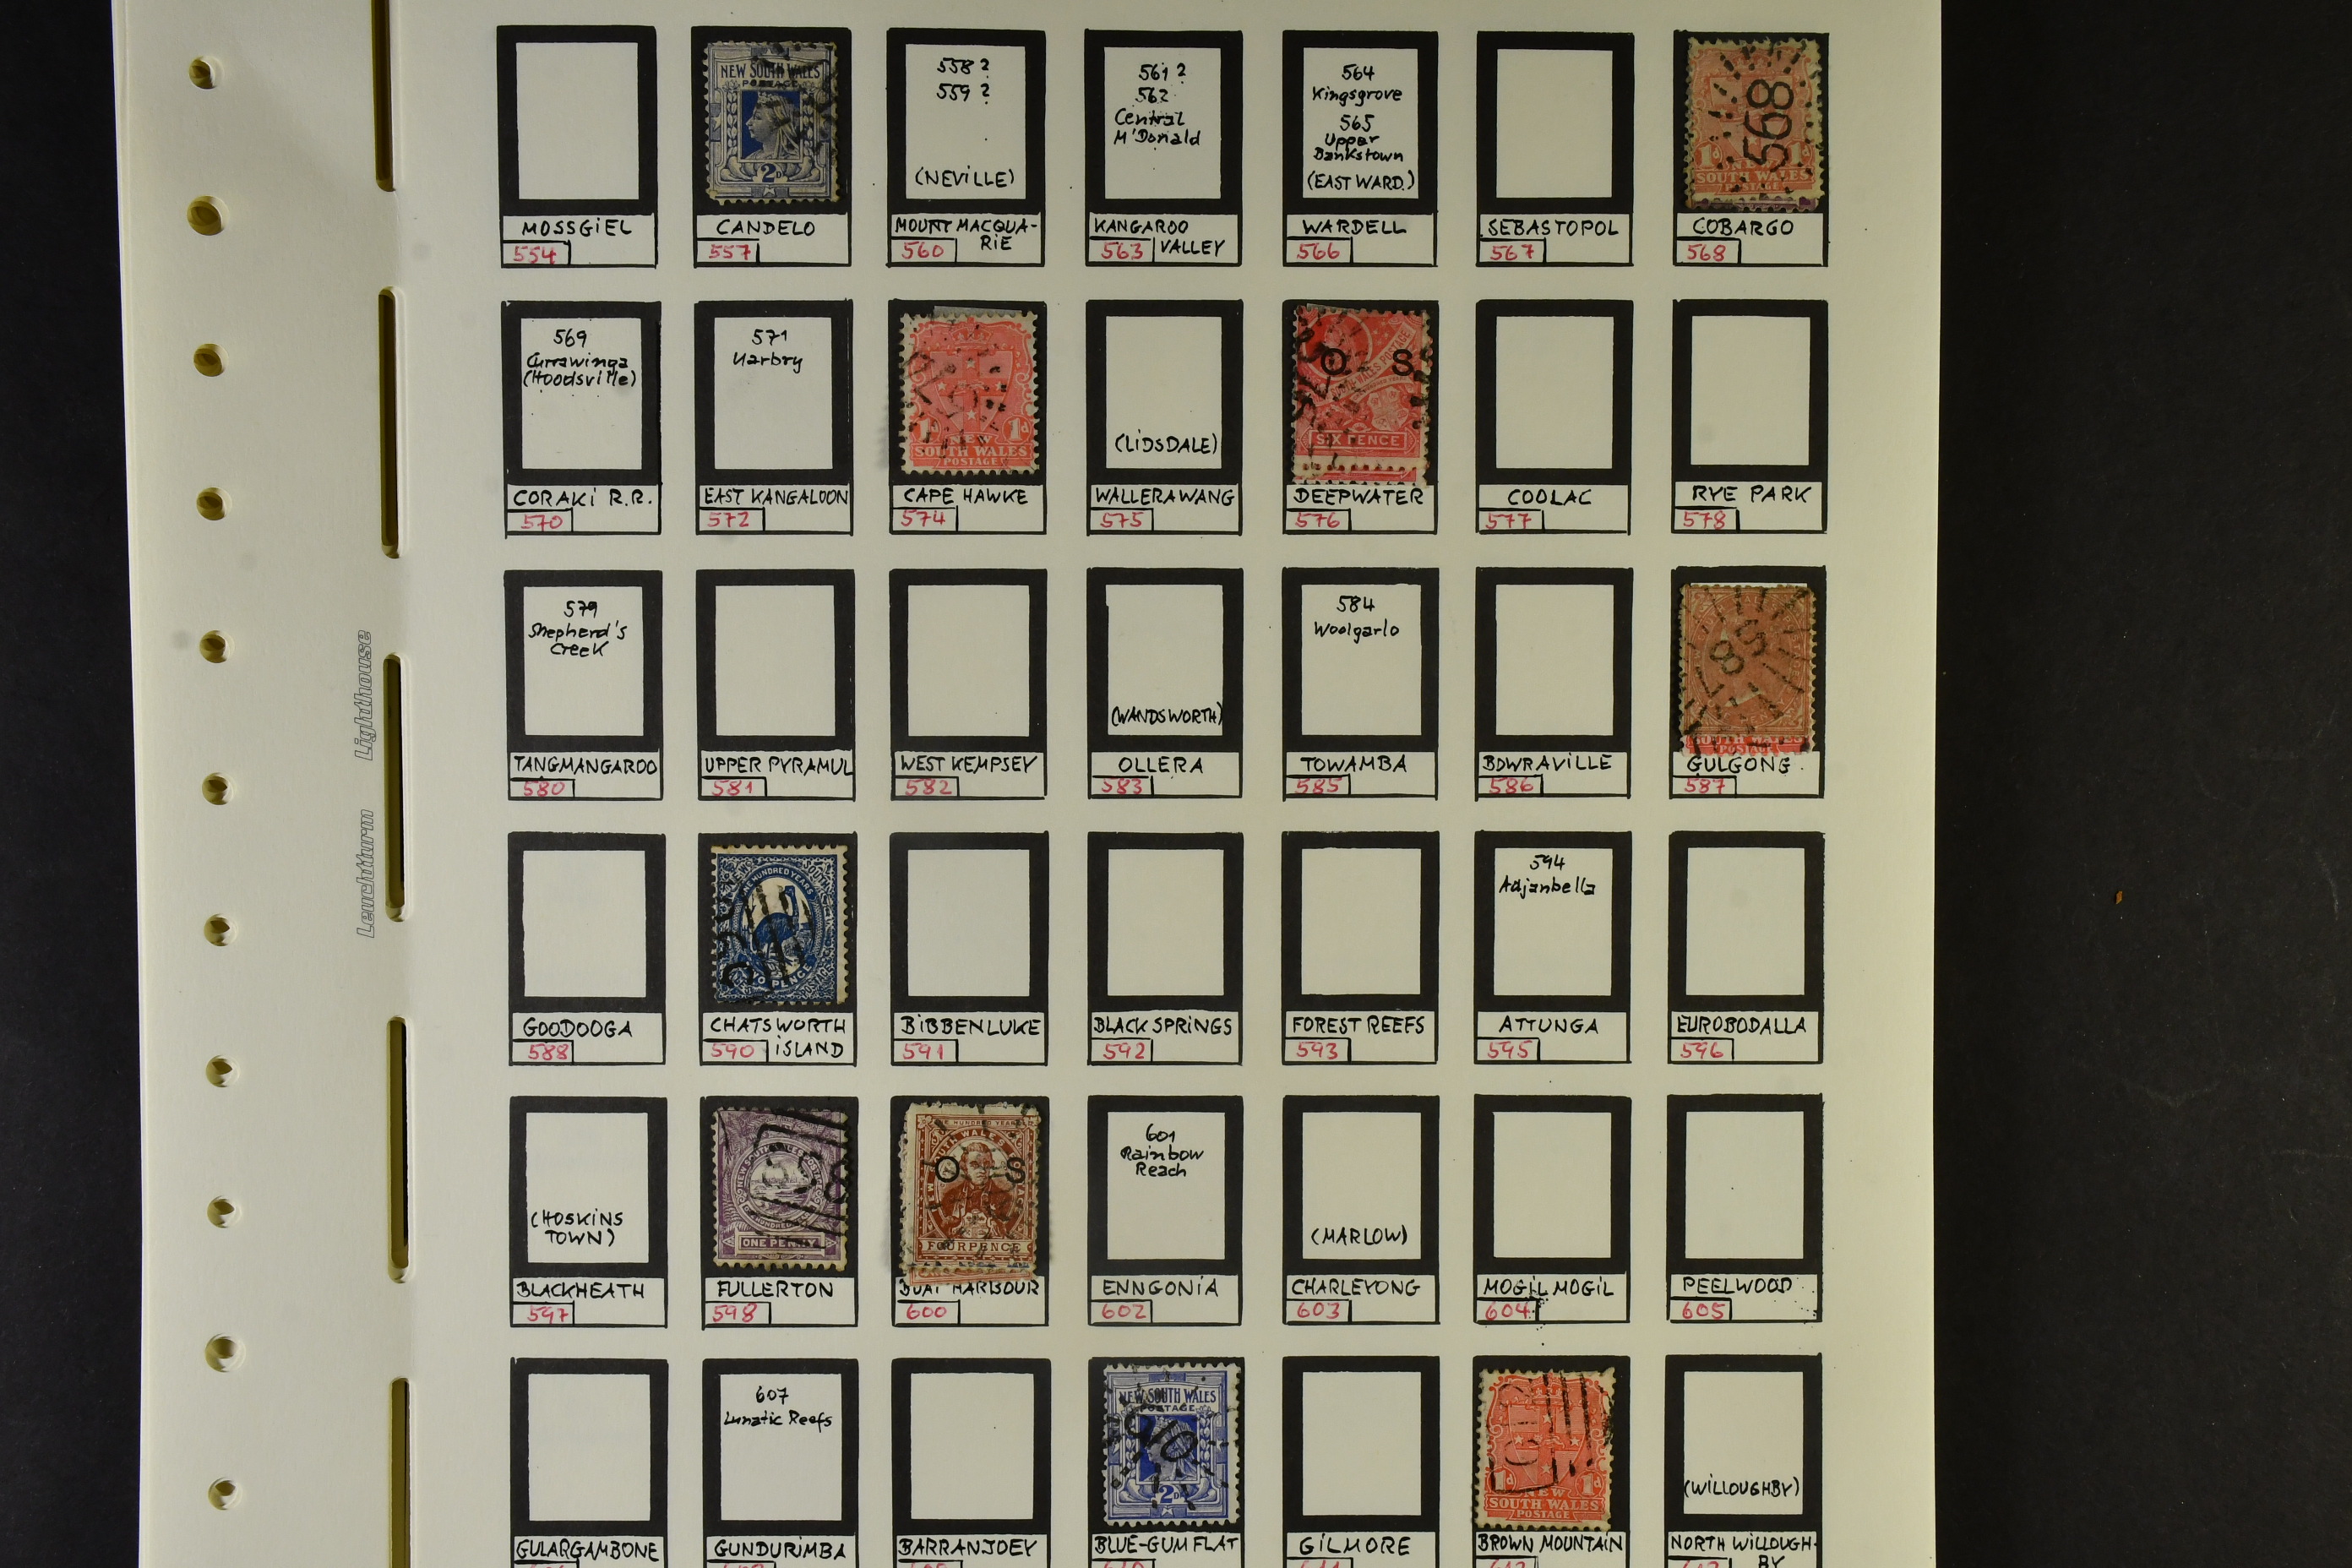 NEW SOUTH WALES
POSTAGE
2D
558?
559?
(NEVILLE)
561?
562
Central
M'Donald
564
Kingsgrove
565
Upper
Bankstown
(EAST WARD.)
568
1d 1d
SOUTH WALES
POSTAGE
MOSSGIEL
554
CANDELO
557
MOUNT MACQUA-
RIE
560
KANGAROO
563 VALLEY
WARDELL
566
SEBASTOPOL
567
COBARGO
568
569
Currawinga
(Hoodsville)
571
Uarbry
1d NEW 1d
SOUTH WALES
POSTAGE
(LIDSDALE)
O S
SIX PENCE
CORAKI R.R.
570
EAST KANGALOON
572
CAPE HAWKE
574
WALLERAWANG
575
DEEPWATER
576
COOLAC
577
RYE PARK
578
579
Shepherd's
Creek
(WANDSWORTH)
584
Woolgarlo
587
TANGMANGAROO
580
UPPER PYRAMUL
581
WEST KEMPSEY
582
OLLERA
583
TOWAMBA
585
BOWRAVILLE
586
GULGONG
587
ONE HUNDRED YEARS
TWO PENCE
594
Adjanbella
GOODOOGA
588
CHATSWORTH
590 ISLAND
BIBBENLUKE
591
BLACK SPRINGS
592
FOREST REEFS
593
ATTUNGA
595
EUROBODALLA
596
(HOSKINS
TOWN)
598
ONE PENNY
O S
FOURPENCE
601
Rainbow
Reach
(MARLOW)
BLACKHEATH
597
FULLERTON
598
HARBOUR
600
ENNGONIA
602
CHARLEYONG
603
MOGIL MOGIL
604
PEELWOOD
605
607
Lunatic Reefs
NEW SOUTH WALES
POSTAGE
610
2D
1d NEW 1d
SOUTH WALES
POSTAGE
(WILLOUGHBY)
GULARGAMBONE
GUNDURIMBA
BARRANJOEY
BLUE-GUM FLAT
GILMORE
BROWN MOUNTAIN
NORTH WILLOUGH-
BY
Leuchtturm Lighthouse